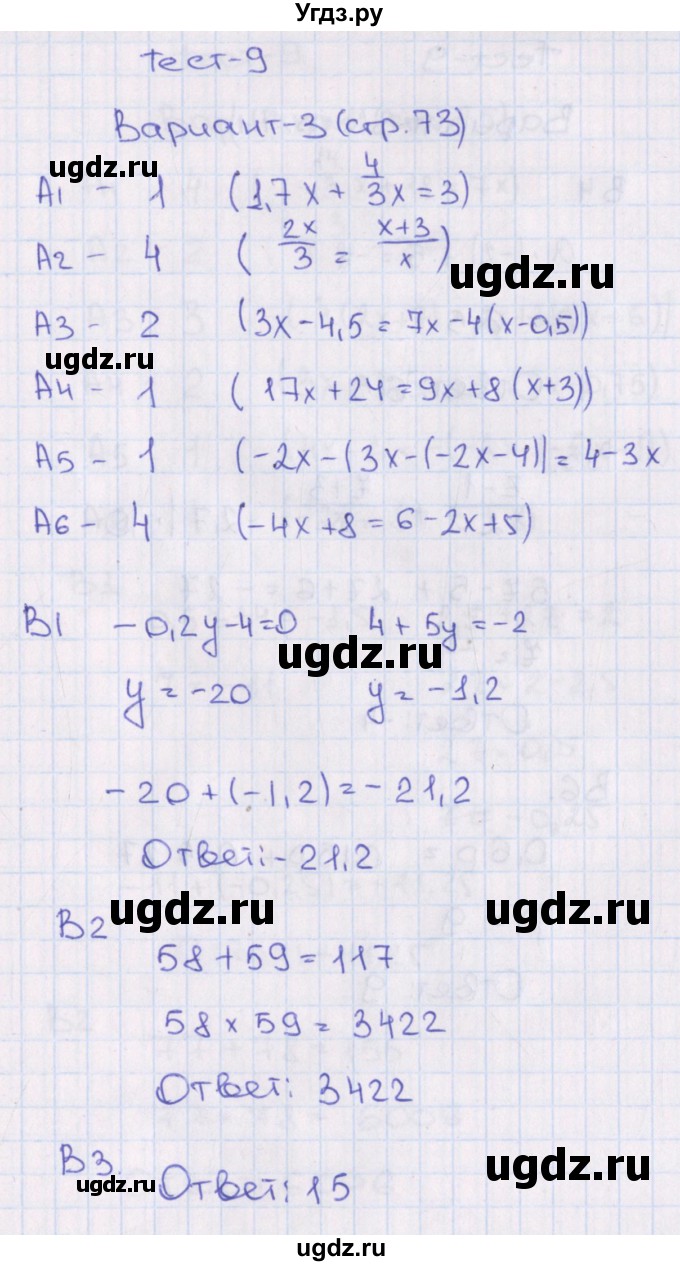 Угдз.ру
Тест-9
Вариант-3 (стр.73)
А1 - 1 (1,7x + 4/3x = 3)
А2 - 4 (2x/3 = x+3/x)
А3 - 2 (3x-4,5 = 7x-4(x-0,5))
А4 - 1 (17x+24 = 9x+8(x+3))
А5 - 1 (-2x-(3x-(-2x-4)) = 4-3x
А6 - 4 (-4x+8 = 6-2x+5)
В1 -0,2y-4=0 4+5y=-2
y = -20 y = -1,2
-20+(-1,2) = -21,2
Ответ: -21,2
В2
58+59 = 117
58 x 59 = 3422
Ответ: 3422
В3
Ответ: 15
ugdz.ru
ugdz.ru
ugdz.ru
ugdz.ru
ugdz.ru
ugdz.ru
ugdz.ru
ugdz.ru
ugdz.ru